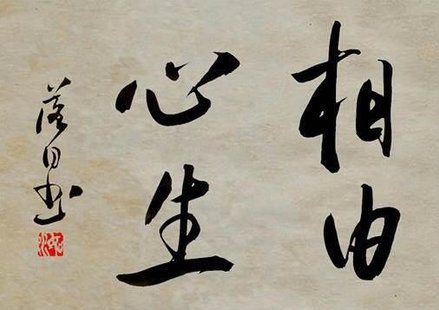 相由
心生
书